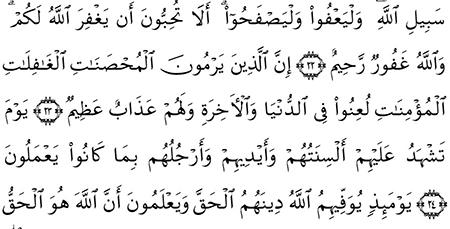 سَبِيلِ اللَّهِ ۖ وَلْيَعْفُوا۟ وَلْيَصْفَحُوٓا۟ ۗ أَلَا تُحِبُّونَ أَن يَغْفِرَ اللَّهُ لَكُمْ ۗ
وَاللَّهُ غَفُورٌ رَّحِيمٌ ﴿٢٢﴾ إِنَّ الَّذِينَ يَرْمُونَ الْمُحْصَنَاتِ الْغَافِلَاتِ
الْمُؤْمِنَاتِ لُعِنُوا۟ فِي الدُّنْيَا وَالْآخِرَةِ وَلَهُمْ عَذَابٌ عَظِيمٌ ﴿٢٣﴾ يَوْمَ
تَشْهَدُ عَلَيْهِمْ أَلْسِنَتُهُمْ وَأَيْدِيهِمْ وَأَرْجُلُهُم بِمَا كَانُوا۟ يَعْمَلُونَ
﴿٢٤﴾ يَوْمَئِذٍ يُوَفِّيهِمُ اللَّهُ دِينَهُمُ الْحَقَّ وَيَعْلَمُونَ أَنَّ اللَّهَ هُوَ الْحَقُّ